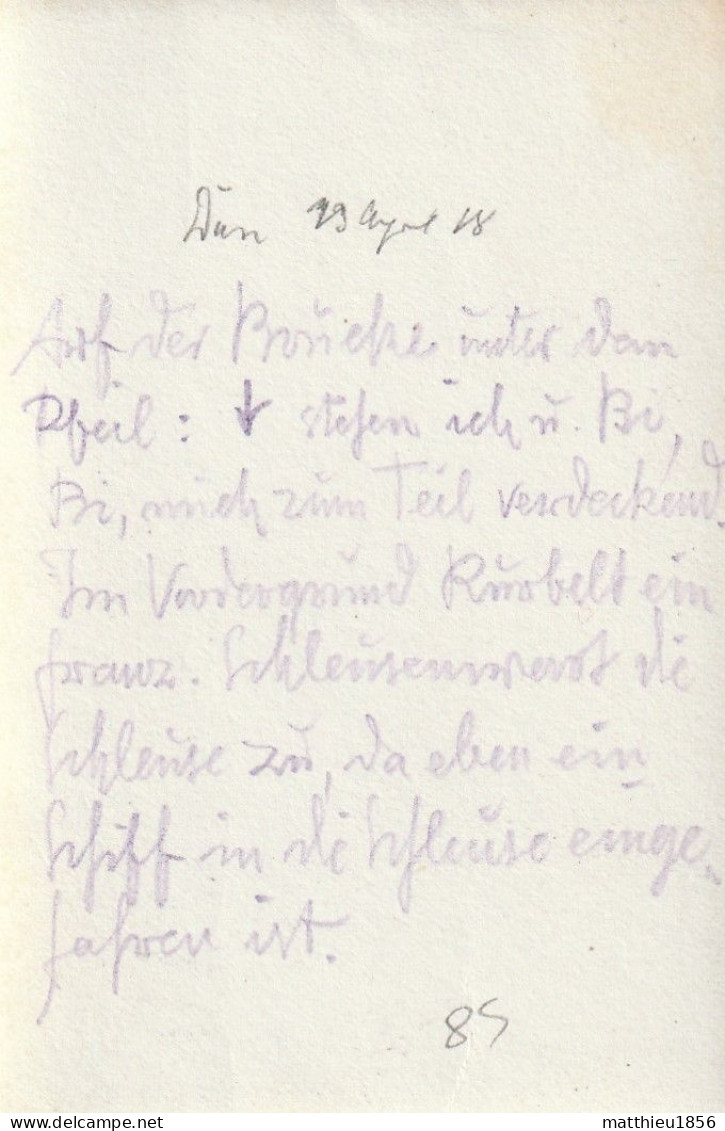 Dun 19 April 18
Auf der Brücke unter dem
Pfeil: ↓ stehen ich u. Bi,
Bi, mich zum Teil verdeckend.
Im Vordergrund Kurbelt ein
franz. Schleusenwart die
Schleuse zu, da eben ein
Schiff in die Schleuse einge-
fahren ist.
85
matthieu1856